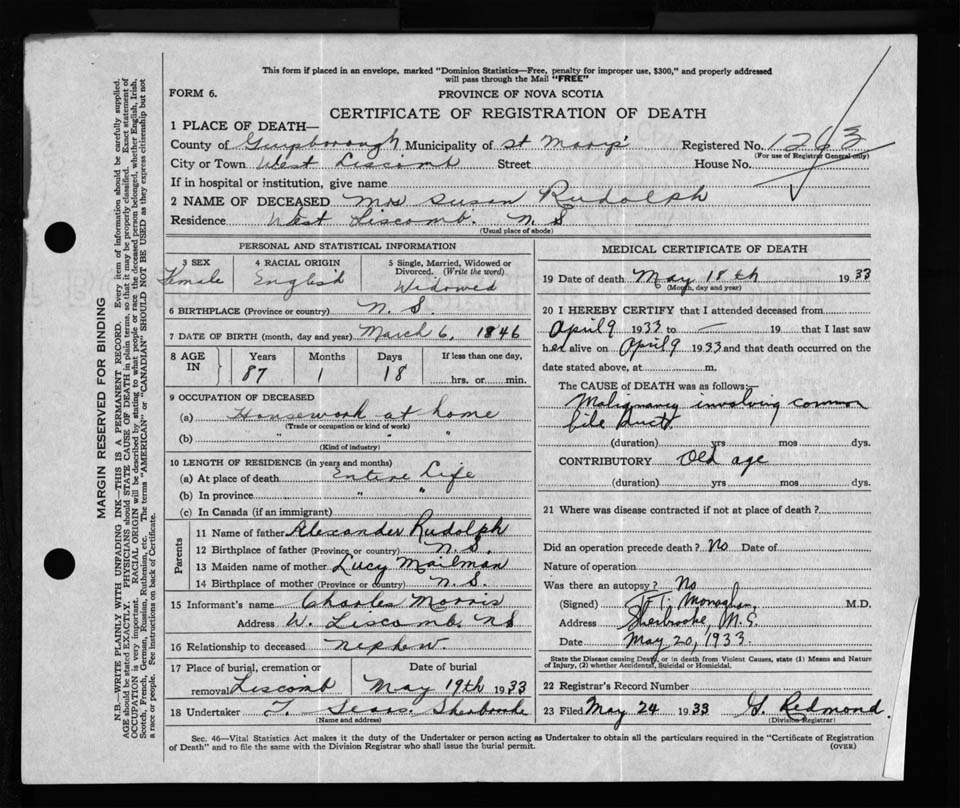 This form if placed in an envelope, marked "Dominion Statistics—Free, penalty for improper use, $300," and properly addressed
will pass through the Mail "FREE"
FORM 6.
PROVINCE OF NOVA SCOTIA
CERTIFICATE OF REGISTRATION OF DEATH
1 PLACE OF DEATH—
County of Guysborough Municipality of St Marys Registered No. 1263
(For use of Registrar General only)
City or Town West Liscomb Street House No.
If in hospital or institution, give name
2 NAME OF DECEASED Mrs Susan Rudolph
Residence West Liscomb. N S
(Usual place of abode)
PERSONAL AND STATISTICAL INFORMATION
3 SEX 4 RACIAL ORIGIN 5 Single, Married, Widowed or
Divorced. (Write the word)
Female English Widowed
6 BIRTHPLACE (Province or country) N. S.
7 DATE OF BIRTH (month, day and year) March 6, 1846
8 AGE IN Years Months Days If less than one day,
87 1 18 hrs. or min.
9 OCCUPATION OF DECEASED
(a) Housework at home
(Trade or occupation or kind of work)
(b) " " "
(Kind of industry)
10 LENGTH OF RESIDENCE (in years and months)
(a) At place of death Entire Life
(b) In province " "
(c) In Canada (if an immigrant)
Parents
11 Name of father Alexander Rudolph
12 Birthplace of father (Province or country) N. S.
13 Maiden name of mother Lucy Mailman
14 Birthplace of mother (Province or country) N. S.
15 Informant's name Charles Morris
Address W. Liscomb. NS
16 Relationship to deceased nephew.
17 Place of burial, cremation or Date of burial
removal Liscomb May 19th 1933
18 Undertaker T. Sherbrooke
(Name and address)
MEDICAL CERTIFICATE OF DEATH
19 Date of death May 18th 1933
(Month, day and year)
20 I HEREBY CERTIFY that I attended deceased from
April 9 1933 to — 19 that I last saw
her alive on April 9 1933 and that death occurred on the
date stated above, at m.
The CAUSE of DEATH was as follows:—
Malignancy involving common
bile duct.
(duration) yrs mos dys.
CONTRIBUTORY Old age
(duration) yrs mos dys.
21 Where was disease contracted if not at place of death?
Did an operation precede death? No Date of
Nature of operation
Was there an autopsy? No
(Signed) Monaghan, M.D.
Address Sherbrooke, N.S.
Date May 20, 1933.
State the Disease causing Death, or in death from Violent Causes, state (1) Means and Nature
of Injury, (2) whether Accidental, Suicidal or Homicidal.
22 Registrar's Record Number
23 Filed May 24 1933 G. Redmond
(Division Registrar)
Sec. 46—Vital Statistics Act makes it the duty of the Undertaker or person acting as Undertaker to obtain all the particulars required in the "Certificate of Registration
of Death" and to file the same with the Division Registrar who shall issue the burial permit.
(OVER)
MARGIN RESERVED FOR BINDING
N.B.—WRITE PLAINLY WITH UNFADING INK—THIS IS A PERMANENT RECORD. Every item of information should be carefully supplied.
AGE should be stated EXACTLY. PHYSICIANS should STATE CAUSE OF DEATH in plain terms, so that it may be properly classified. Exact statement of
OCCUPATION is very important. RACIAL ORIGIN will be described by stating to what people or race the deceased person belonged, whether English, Irish,
Scotch, French, German, Russian, Ruthenian, etc. The terms "AMERICAN" or "CANADIAN" SHOULD NOT BE USED as they express citizenship but not
a race or people. See instructions on back of Certificate.